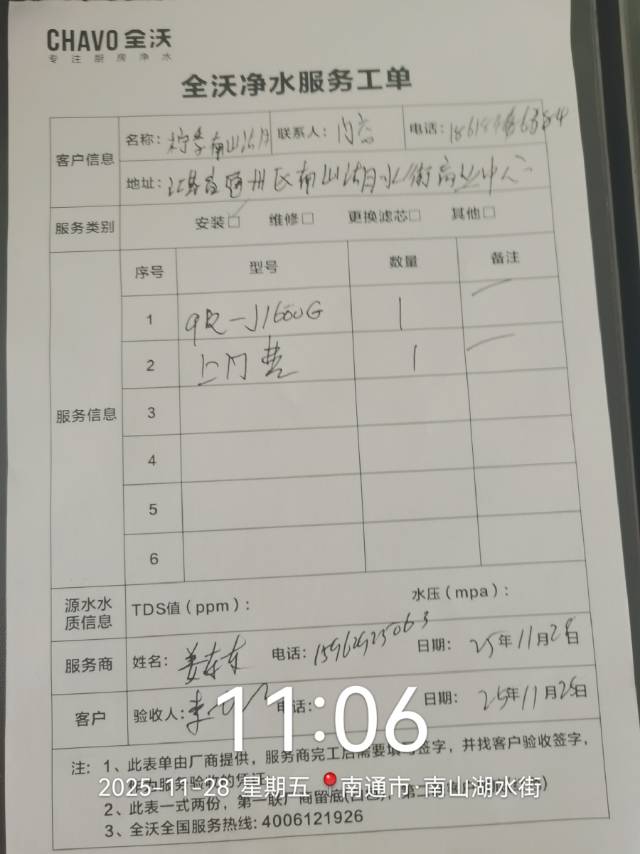 CHAVO 全沃
专 注 厨 房 净 水
全沃净水服务工单
客户信息
名称: 柠季南山湖 联系人: 电话:
地址: 江苏省通州区南山湖水街商业中心
服务类别 安装□ 维修□ 更换滤芯□ 其他□
服务信息
序号 型号 数量 备注
1 QR-J1600G 1
2 上门费 1
3
4
5
6
源水水质信息 TDS值(ppm): 水压(mpa):
服务商 姓名: 姜东东 电话: 15962925063 日期: 25年11月28日
客户 验收人: 李 电话: 日期: 25年11月28日
11:06
注: 1、此表单由厂商提供,服务商完工后需要填写签字,并找客户验收签字,
2025-11-28 星期五 南通市·南山湖水街
2、此表一式两份,第一联厂商留底
3、全沃全国服务热线: 4006121926